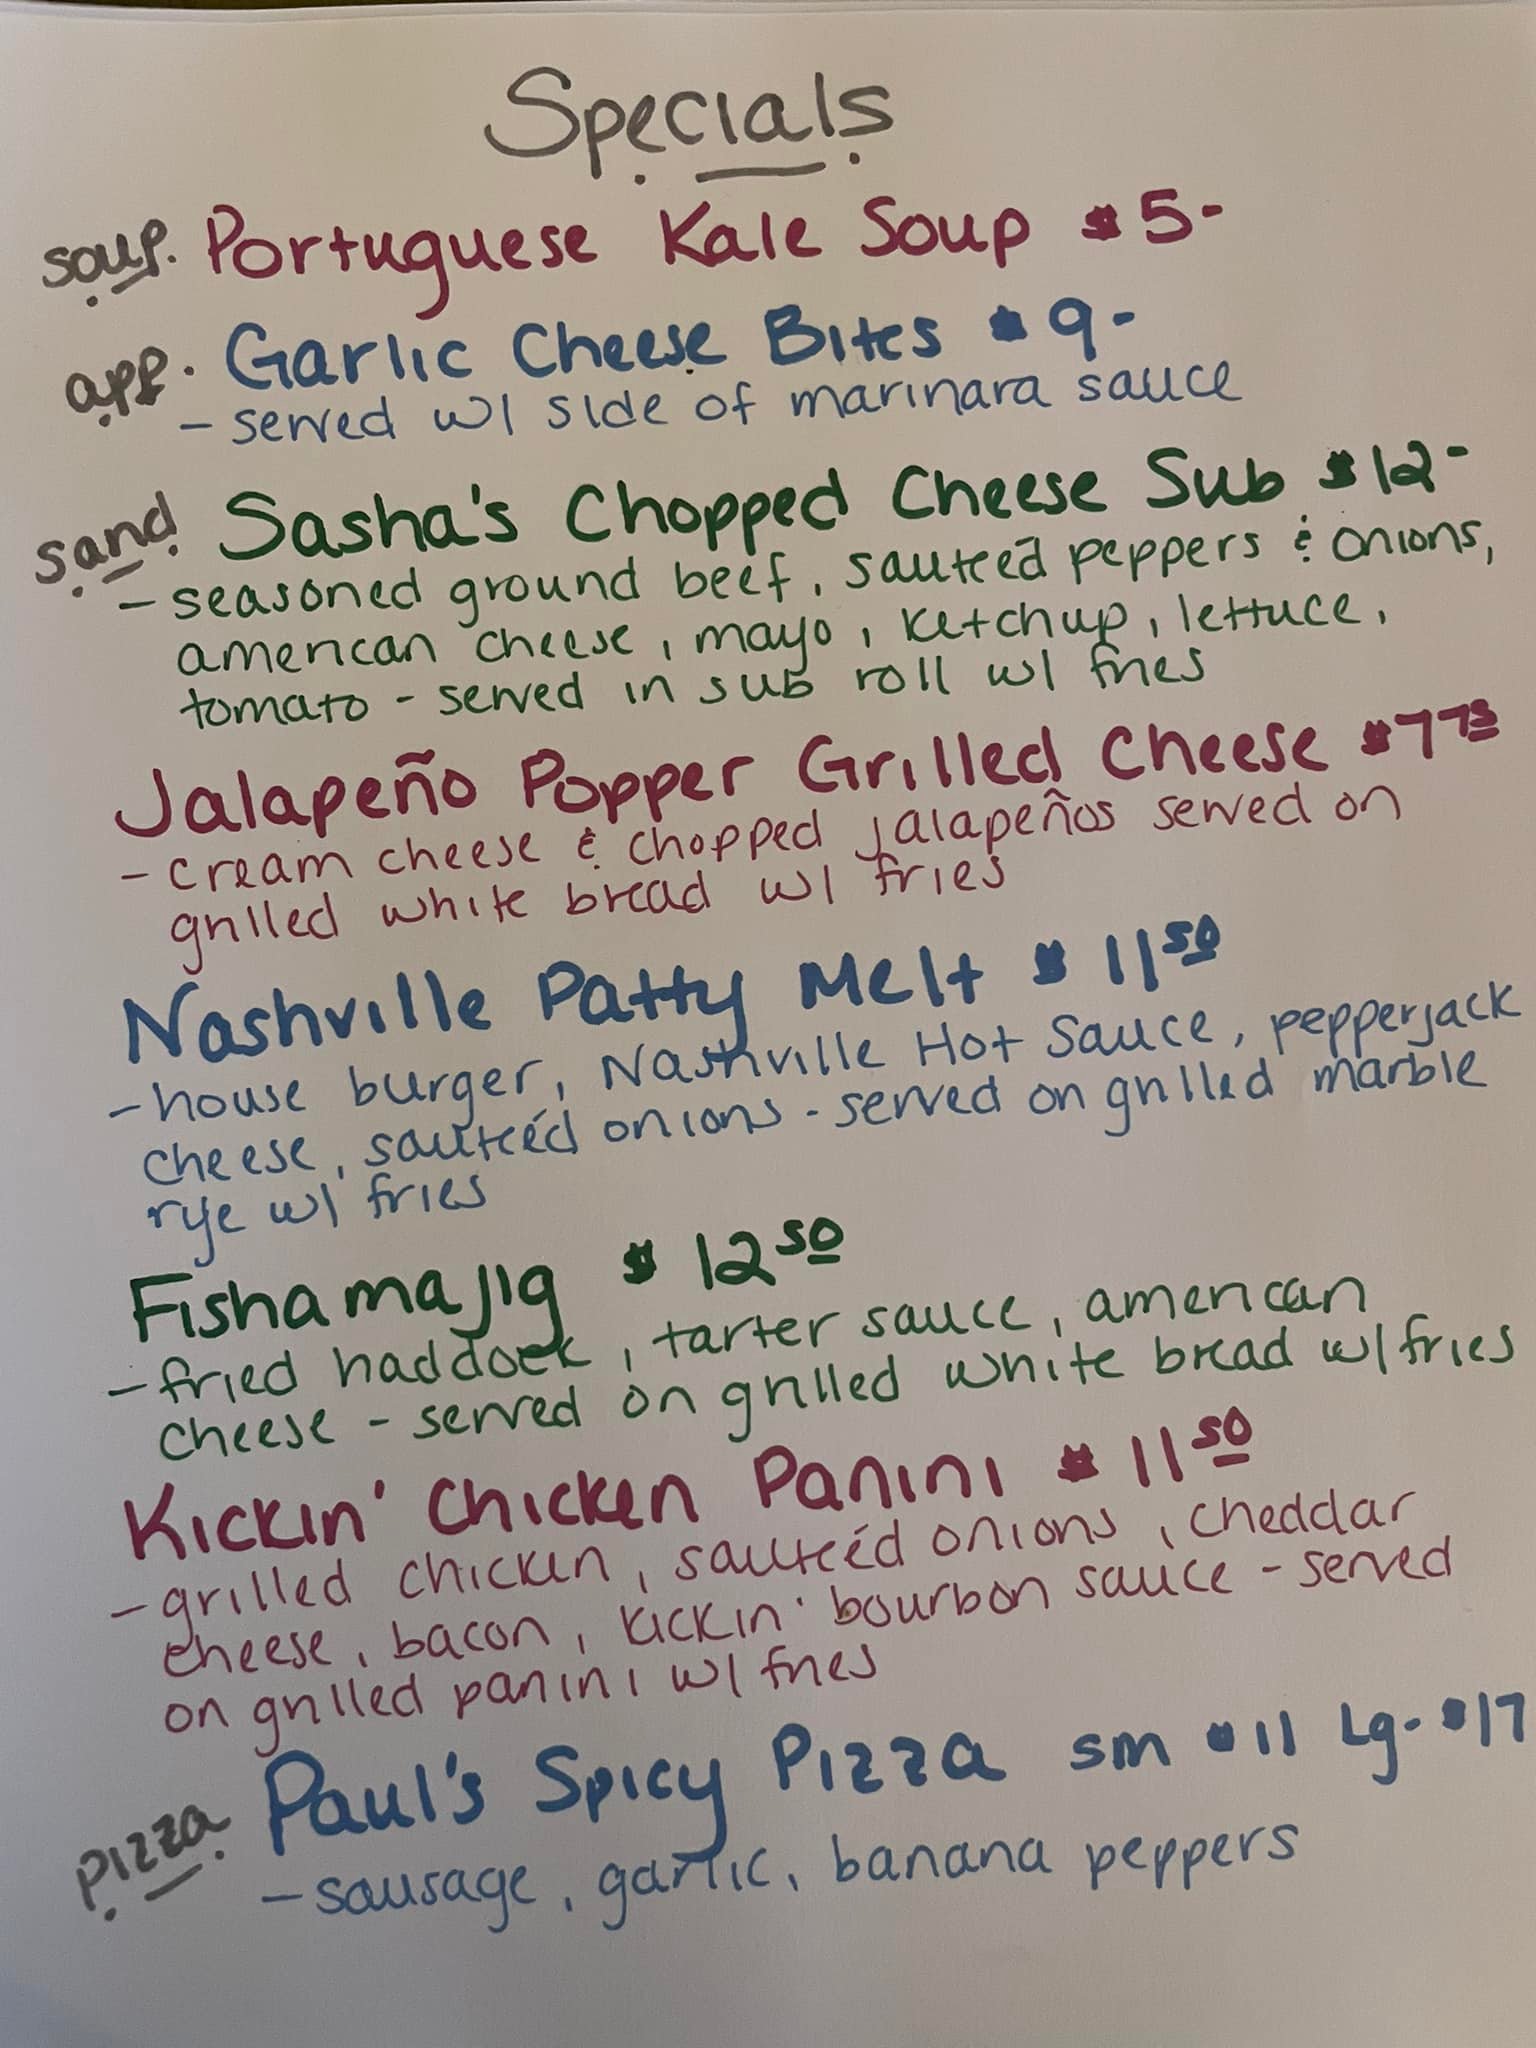 Specials
soup. Portuguese Kale Soup $5-
app. Garlic Cheese Bites $9-
- served w/ side of marinara sauce
sand Sasha's Chopped Cheese Sub $12-
- seasoned ground beef, sauteéd peppers & onions,
american cheese, mayo, ketchup, lettuce,
tomato - served in sub roll w/ fries
Jalapeño Popper Grilled Cheese $7.75
- cream cheese & chopped jalapeños served on
grilled white bread w/ fries
Nashville Patty Melt $11.50
- house burger, Nashville Hot Sauce, pepperjack
cheese, sauteéd onions - served on grilled marble
rye w/ fries
Fishamajig $12.50
- fried haddock, tarter sauce, american
cheese - served on grilled white bread w/ fries
Kickin' Chicken Panini $11.50
- grilled chicken, sauteéd onions, cheddar
cheese, bacon, kickin' bourbon sauce - served
on grilled panini w/ fries
pizza Paul's Spicy Pizza sm $11 Lg- $17
- sausage, garlic, banana peppers